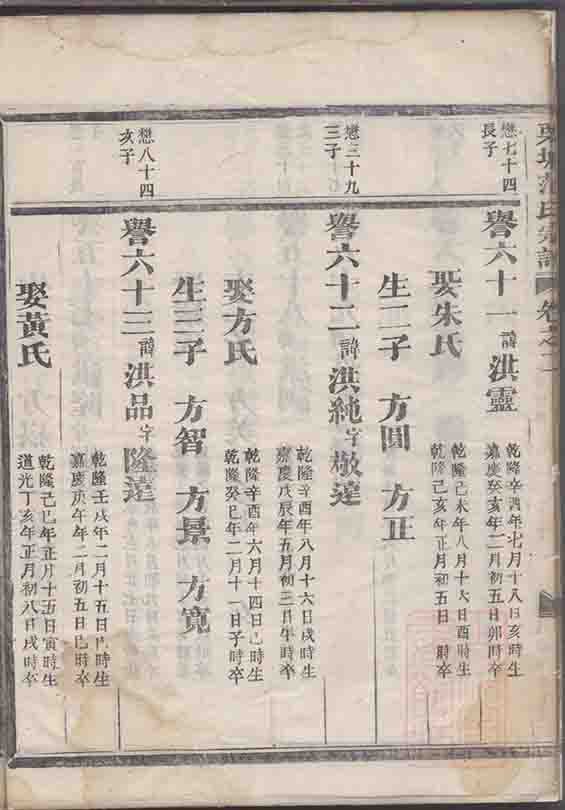 范氏宗譜 卷之二
懋七十四
長子
譽六十一 諱洪靈
乾隆辛酉年七月十八日亥時生
嘉慶癸亥年二月初五日卯時卒
娶朱氏
乾隆己未年八月十六日酉時生
乾隆己亥年正月初五日 時卒
生二子 方圓 方正
懋三十九
三子
譽六十二 諱洪純字敬達
乾隆辛酉年八月十六日戌時生
嘉慶戊辰年五月初三日午時卒
娶方氏
乾隆辛酉年六月十四日巳時生
乾隆癸巳年二月十一日子時卒
生三子 方智 方景 方寬
懋八十四
亥子
譽六十三 諱洪品字隆達
乾隆壬戌年二月十五日巳時生
嘉慶庚午年二月初五日巳時卒
娶黃氏
乾隆己巳年正月十五日寅時生
道光丁亥年正月初八日戌時卒